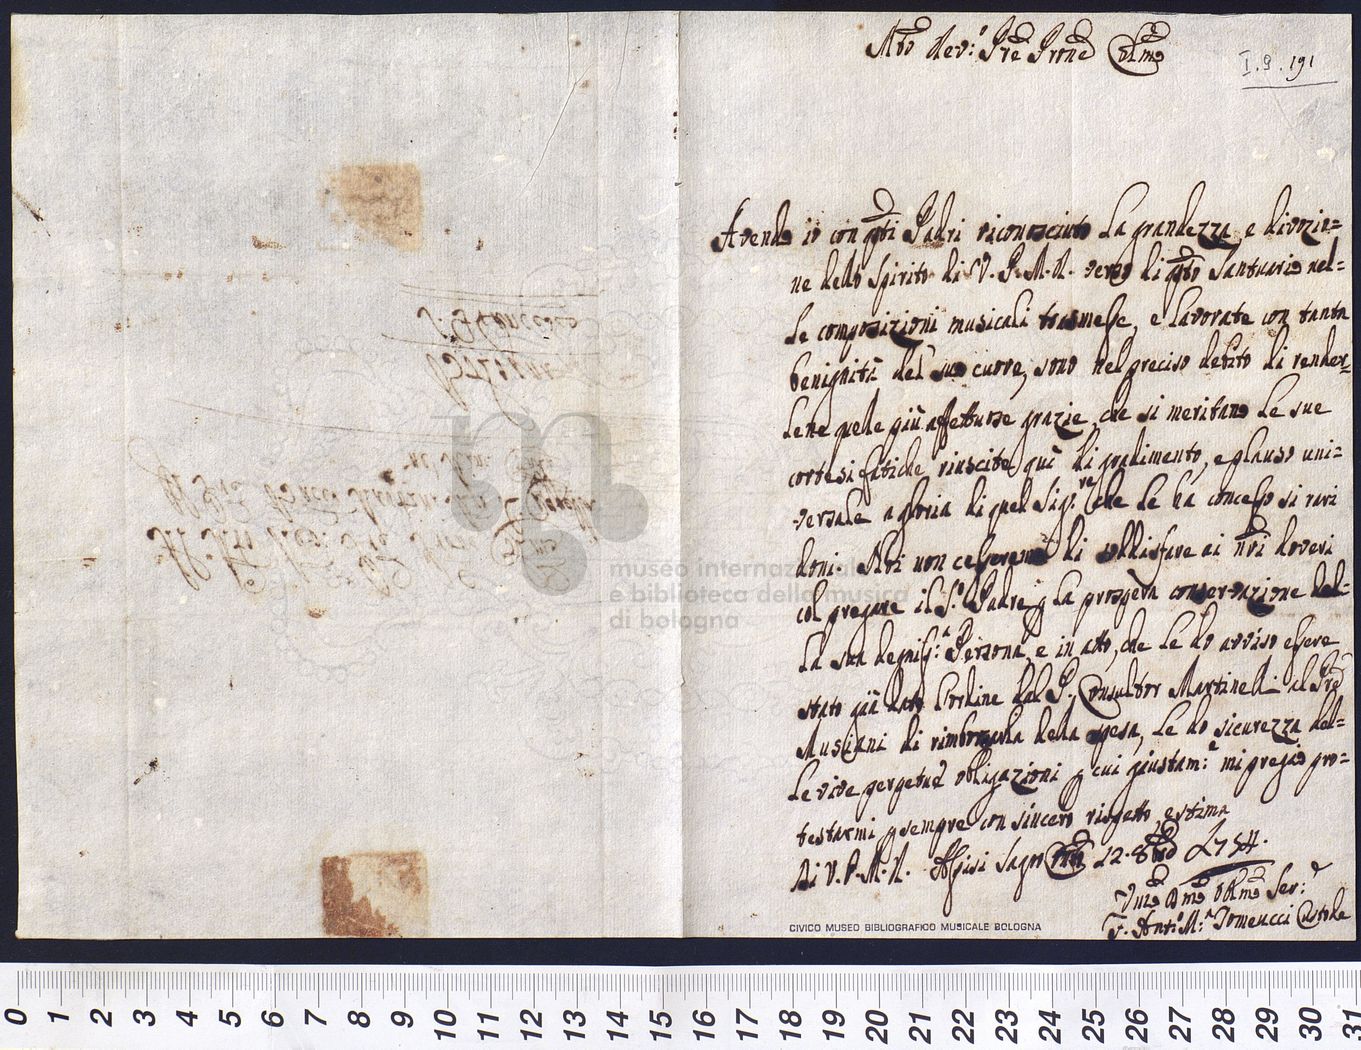 Mto Rev: Pre Prone Colmo
I.9.191
Avendo io con questi Padri riconosciuto la grandezza, e divozio=
ne dello Spirito di V. P. M. R. verso di qsto Santuario nel=
le composizioni musicali trasmesse, e lavorate con tanta
benignità del suo cuore, sono nel preciso debito di render=
lene quele più affettuose grazie, che si meritano le sue
cortesi fatiche riuscite quì di gradimento, e plauso uni=
versale a gloria di quel Sig:re che le ha concesso si rari
doni. Noi non cesseremo di soddisfare ai nri doveri
col pregare il S. Padre p la prospera conservazione del=
la sua degniss:a Persona, e in atto, che le do avviso essere
stato già dato l'ordine dal P. Consultor Martinelli al Pre
Musiani di rimborsarla della spesa, le do sicurezza del=
le vive perpetue obligazioni p cui giustam:e mi pregio pro=
testarmi p sempre con sincero rispetto, e stima
Di V. P. M. R. Assisi Sagro Conto 12. 8bre 1754.
Umo Dmo Obmo Ser:
F. Anto Ma Tomeucci Custode
Al Mto Rev. Pre Prone Colmo
Il Pre Franco Martini
Bologna
S. Francesco
museo internazionale
e biblioteca della musica
di bologna
CIVICO MUSEO BIBLIOGRAFICO MUSICALE BOLOGNA
0 1 2 3 4 5 6 7 8 9 10 11 12 13 14 15 16 17 18 19 20 21 22 23 24 25 26 27 28 29 30 31